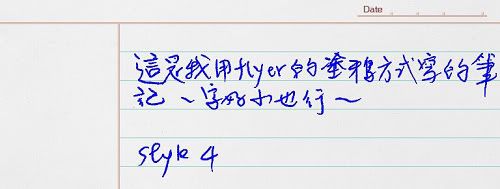 Date
這是我用flyer的塗鴉方式寫的筆
記～字好小也行～
style 4